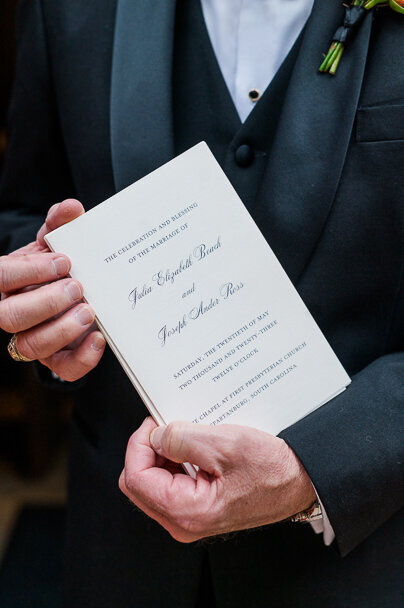 THE CELEBRATION AND BLESSING
OF THE MARRIAGE OF
Julia Elizabeth Beach
and
Joseph Ander Ross
SATURDAY, THE TWENTIETH OF MAY
TWO THOUSAND AND TWENTY-THREE
TWELVE O'CLOCK
THE CHAPEL AT FIRST PRESBYTERIAN CHURCH
SPARTANBURG, SOUTH CAROLINA